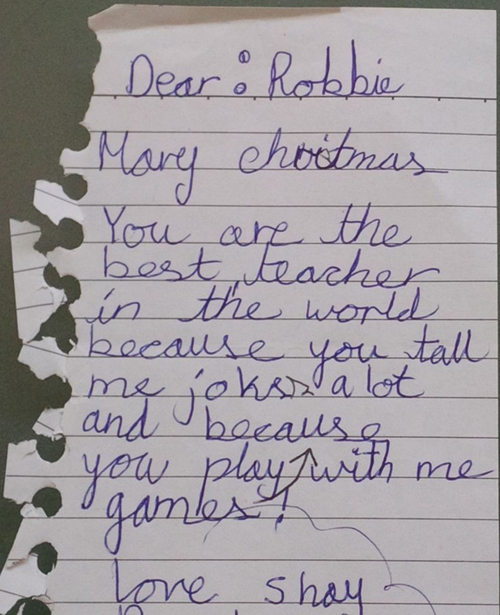 Dear: Robbie
Mary chroitmas
You are the
best teacher
in the world
because you tall
me jokes a lot
and because
you play with me
games!
Love Shay